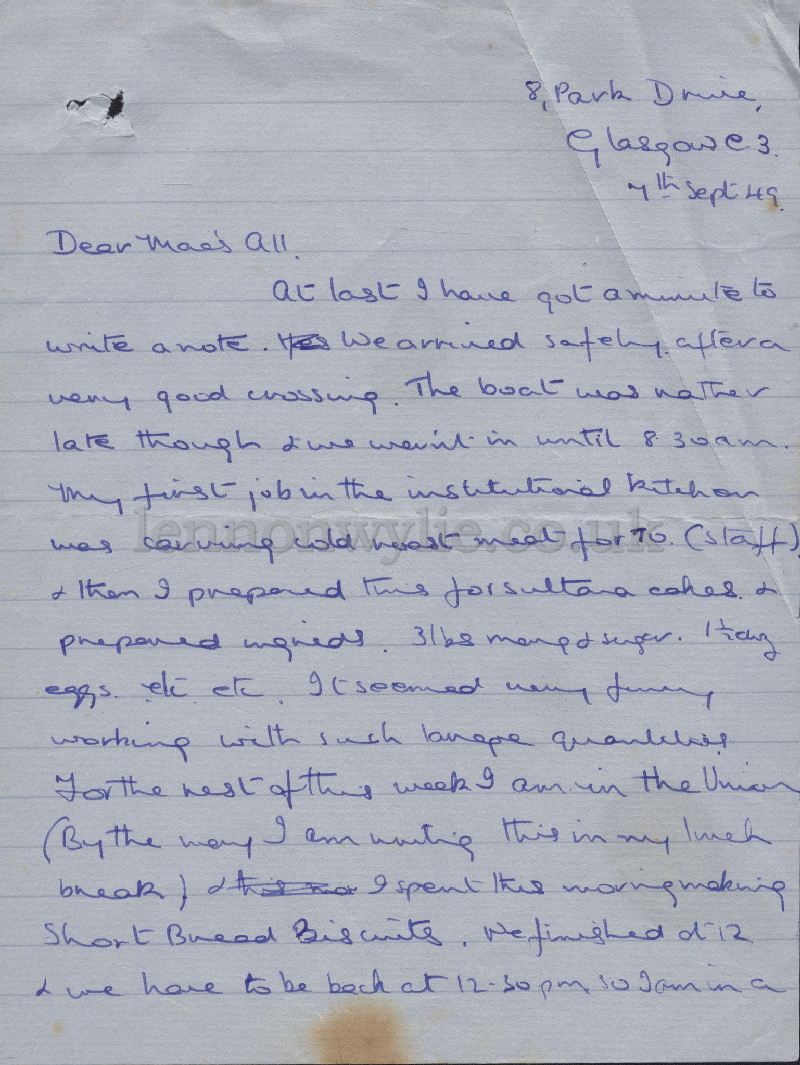 8, Park Drive,
Glasgow C 3.
7th Sept 49.
Dear Mae & All.
At last I have got a minute to
write a note. Yes We arrived safely after a
very good crossing. The boat was rather
late though & we weren't in until 8 30 am.
My first job in the institutional kitchen
was carving cold roast meat for 70. (staff)
& then I prepared tins for sultana cakes &
prepared ingreds. 3lbs marg & sugar. 1½ doz
eggs. etc etc. It seemed very funny
working with such large quantities
For the rest of this week I am in the Union
(By the way I am writing this in my lunch
break) & this I spent this morning making
Short Bread Biscuits. We finished at 12
& we have to be back at 12-30 pm, so I am in a
lennonwylie.co.uk